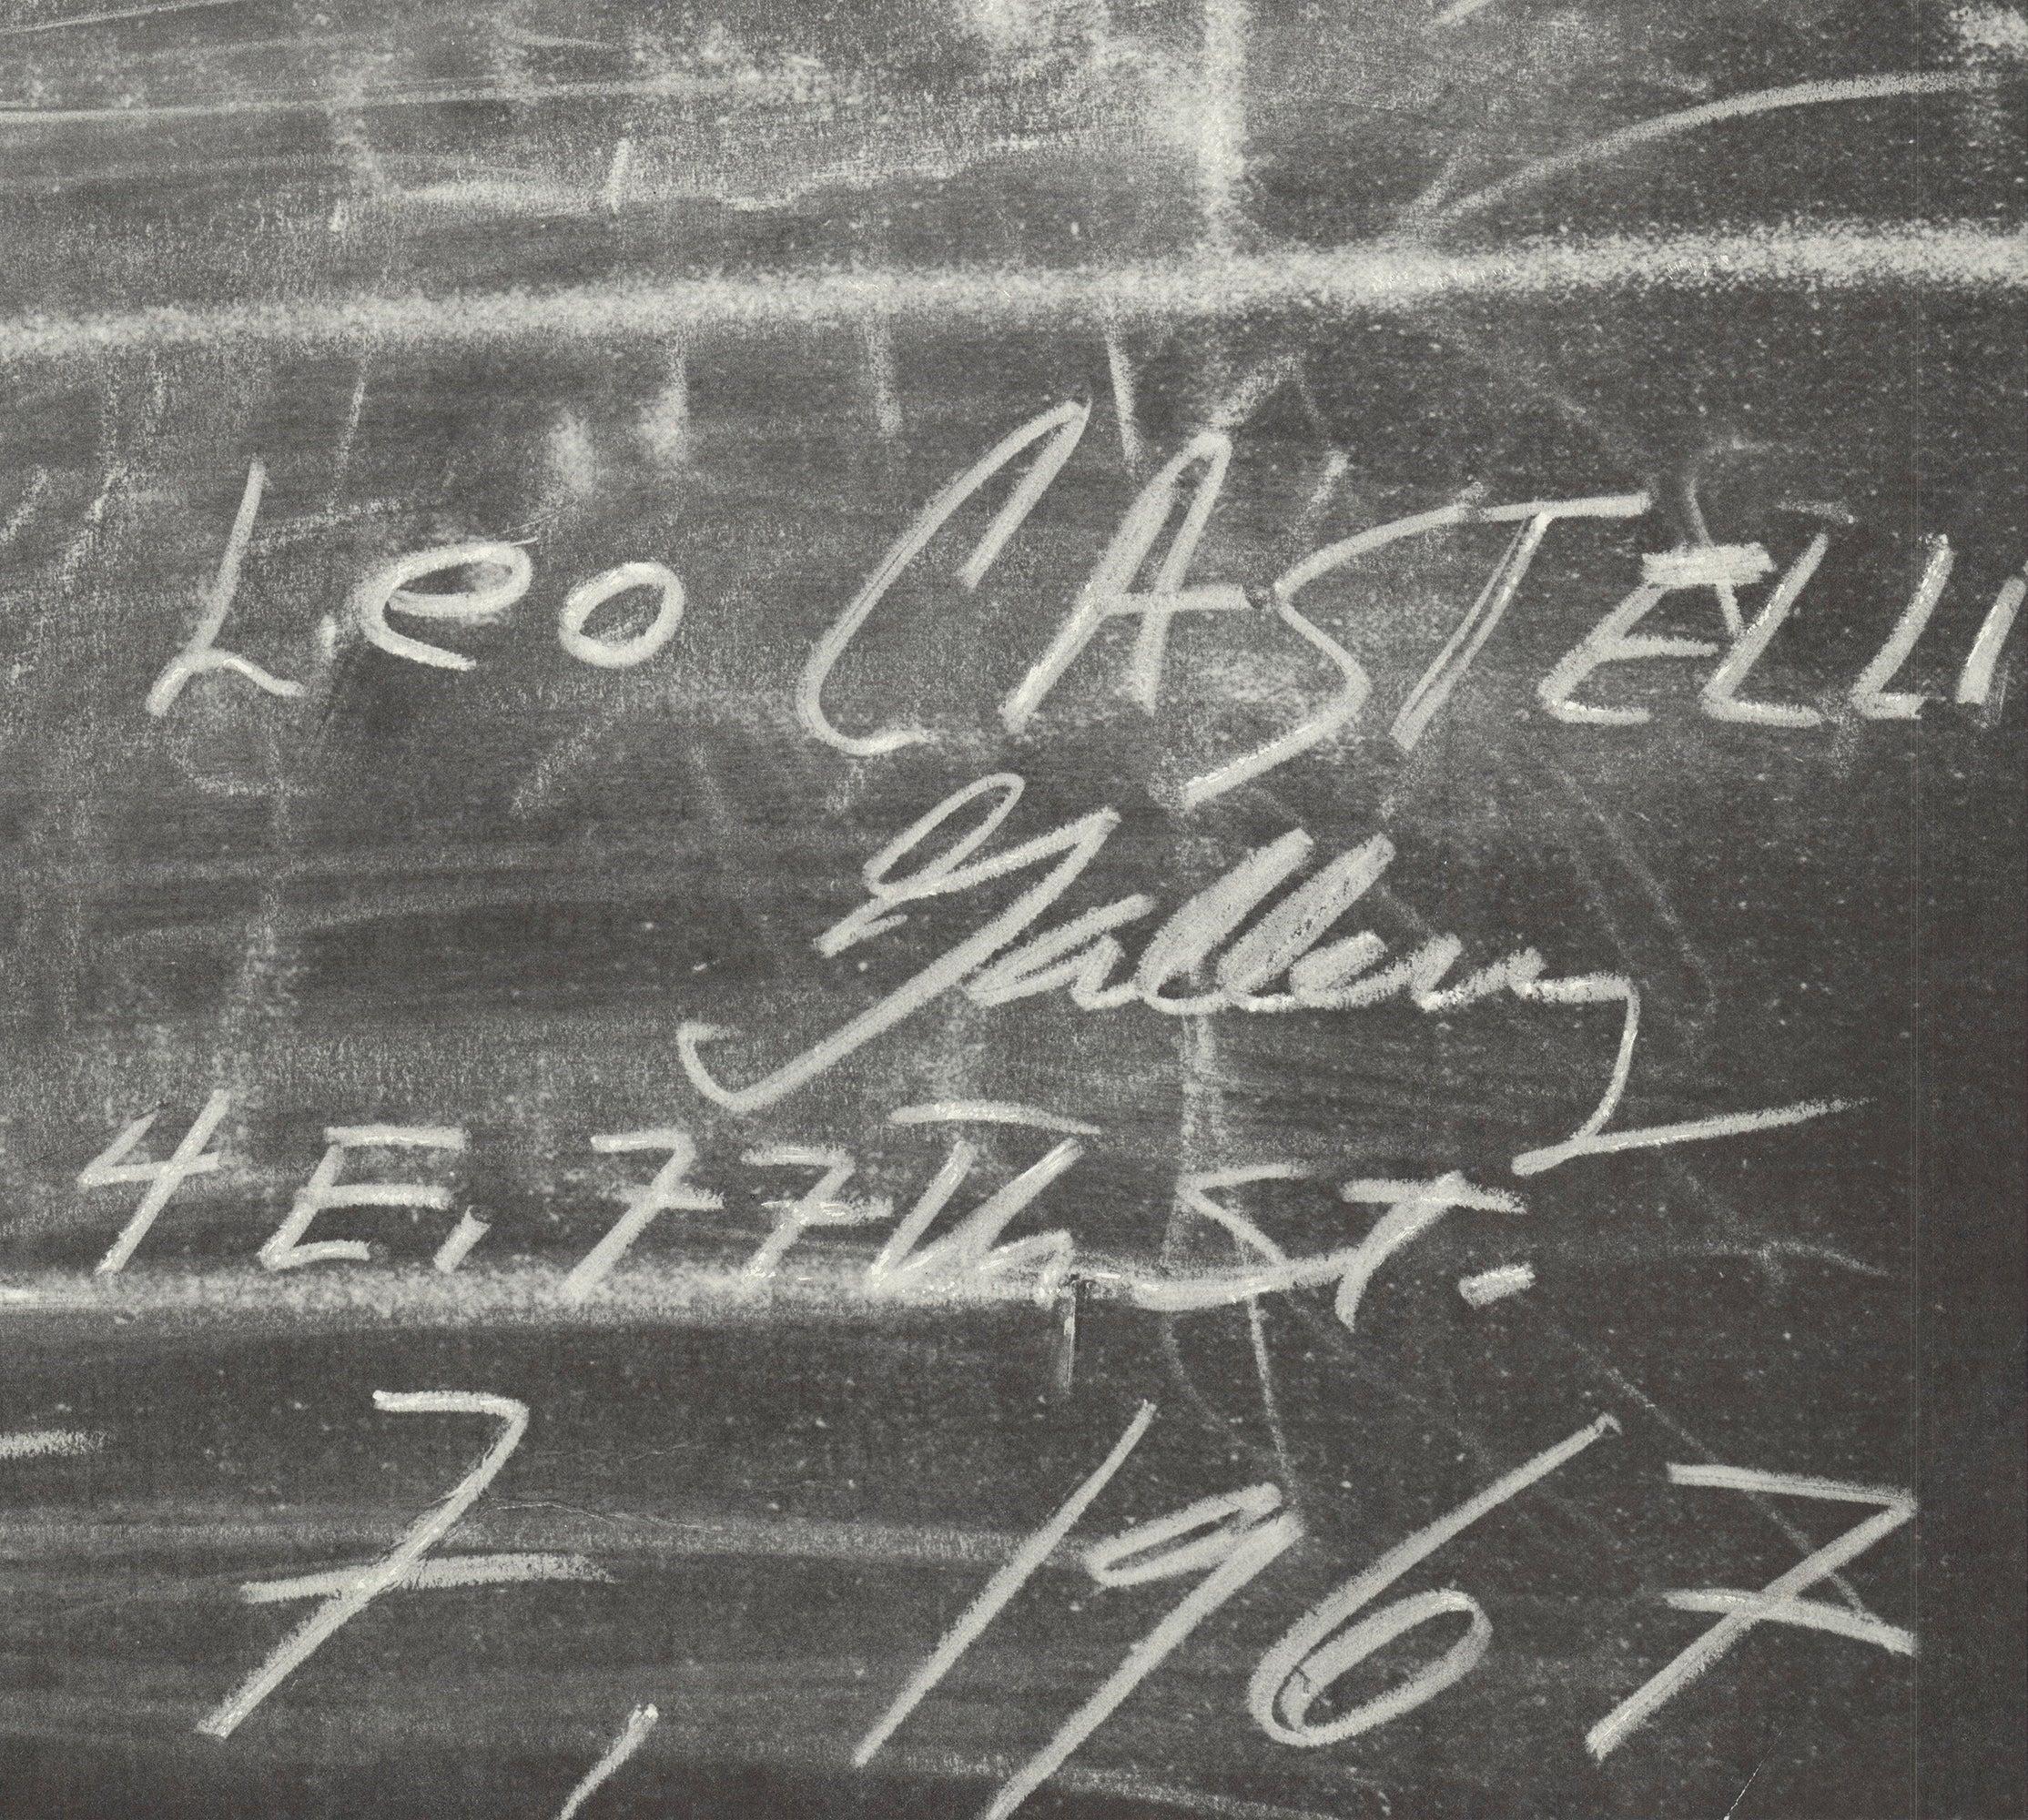 Leo CASTELLI
Gallery
4 E. 77th St.
7, 1967